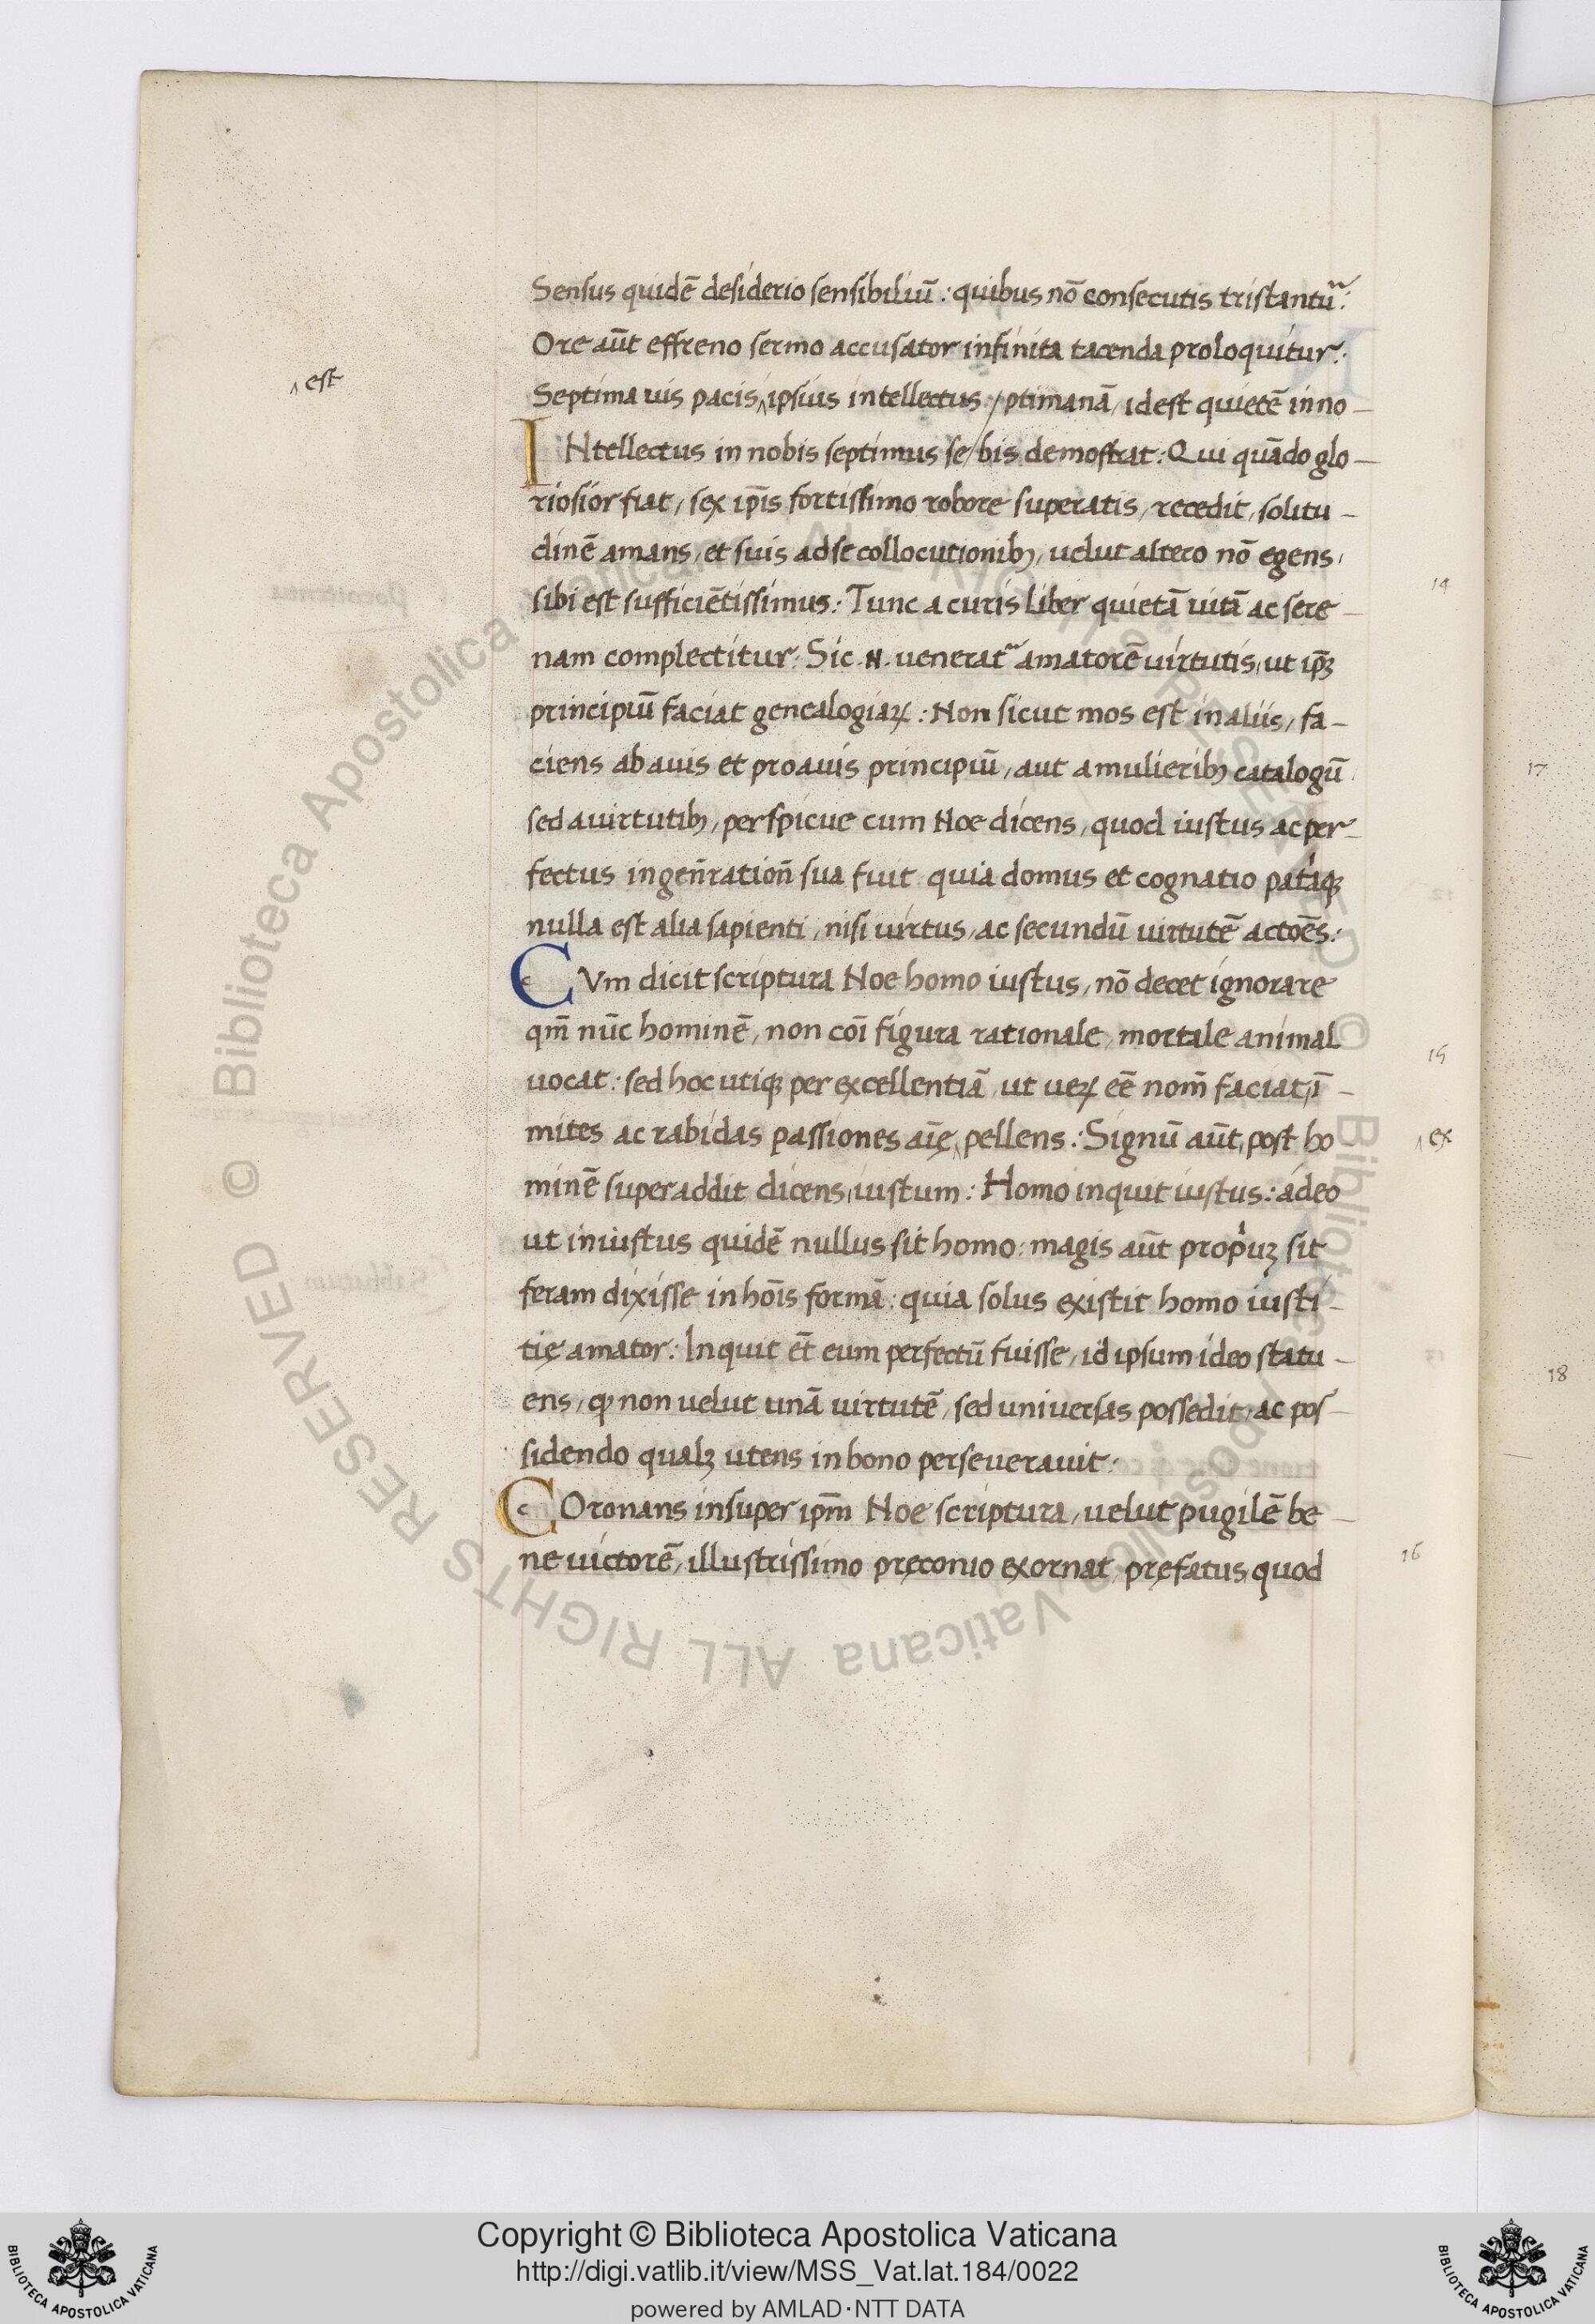 Sensus quidē desiderio sensibiliū: quibus nō consecutis tristantur̃:
Ore aūt effreno sermo accusator infinita tacenda proloquitur:
^ est
Septima uis pacis ^ ipsius intellectus / ptimanā, id est quietē in no-
INtellectus in nobis septimus se / bis demostrat: Qui quādo glo-
riosior fiat, sex ip̄is fortissimo robore superatis, recedit, solitu-
dinē amans, et suis ad se collocutionibꝫ, uelut altero nō egens,
14
sibi est sufficiētissimus: Tunc a curis liber quietā uitā ac sere-
nam complectitur: Sic .N. uenerat᷑ amatorē uirtutis, ut ip̄ꝫ
principiū faciat genealogiaꝝ: Non sicut mos est in aliis, fa-
ciens ab auis et proauis principiū, aut a mulieribꝫ catalogū
sed a uirtutibꝫ, perspicue cum Noe dicens, quod iustus ac per-
fectus in gen̄ration̄ sua fuit quia domus et cognatio patiaqꝫ
nulla est alia sapienti, nisi uirtus, ac secundū uirtutē actōes:
CVm dicit scriptura Noe homo iustus, nō decet ignorare
qm̄ nūc hominē, non coī figura rationale, mortale animal
15
uocat: sed hoc utiqꝫ per excellentiā, ut ueꝝ eē nom̄ faciat, ī-
mites ac rabidas passiones aīę ^ pellens: Signū aūt, post ho
^ ex
minē superaddit dicens, iustum: Homo inquit iustus: adeo
ut iniustus quidē nullus sit homo: magis aūt propͥuꝫ sit
feram dixisse in hoīs formā: quia solus existit homo iusti-
tię amator: Inquit ēt eum perfectū fuisse, id ipsum ideo statu-
ens, ꝙ non uelut unā uirtutē, sed uniuersas possedit, ac pos-
sidendo qualꝫ utens in bono perseuerauit:
COronans insuper ip̄m Noe scriptura, uelut pugilē be-
16
ne uictorē, illustrissimo pręconio exornat, pręfatus, quod
17
18
Copyright © Biblioteca Apostolica Vaticana
http://digi.vatlib.it/view/MSS_Vat.lat.184/0022
powered by AMLAD·NTT DATA
BIBLIOTECA APOSTOLICA VATICANA
BIBLIOTECA APOSTOLICA VATICANA
© Biblioteca Apostolica Vaticana ALL RIGHTS RESERVED
© Biblioteca Apostolica Vaticana ALL RIGHTS RESERVED